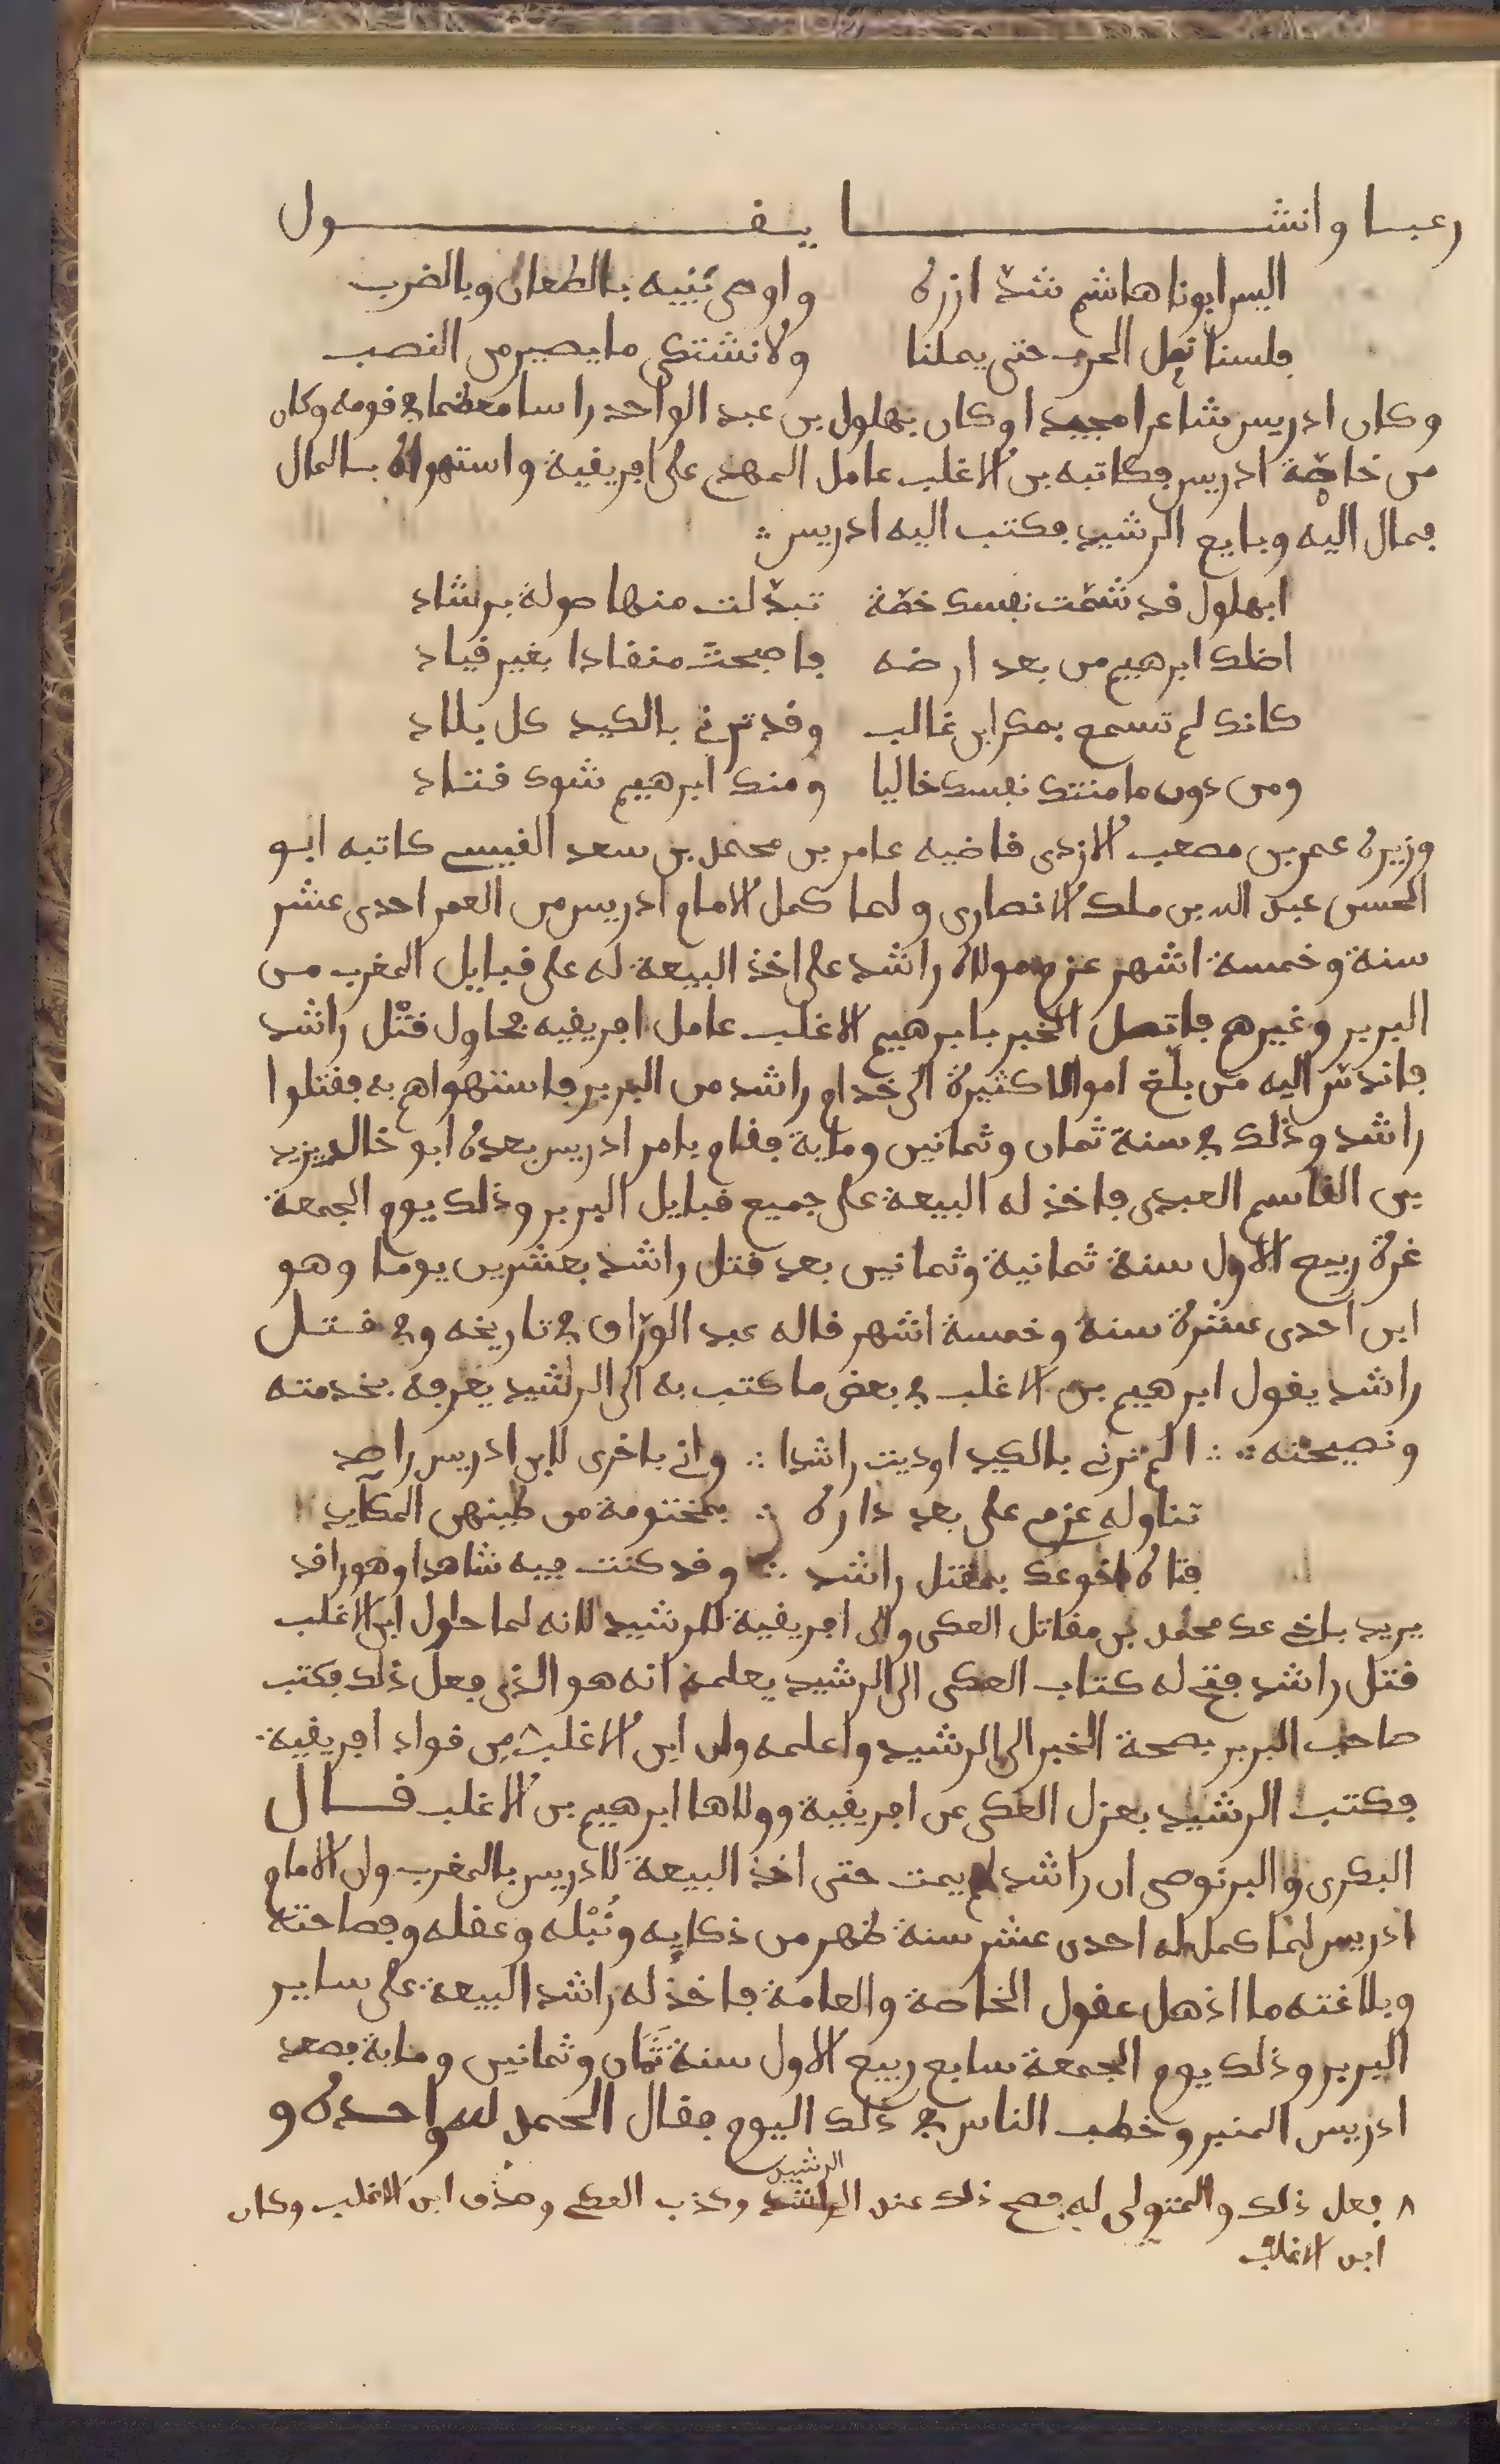 رعبا وانشا يقول
اليس ابونا هاشم شدّ ازره واوصى بنيه بالطعان وبالضرب
فلسنا نمل الحرب حتى يملنا ولا نشتكى ما يصير من النصب
وكان ادريس شاعرا مجيدا وكان بهلول بن عبد الواحد راسا معظما في قومه وكان
من خاصّة ادريس فكاتبه بن الاغلب عامل المهدي على افريقية واستهواه بالمال
فمال اليه وبايع الرشيد فكتب اليه ادريس
ابهلول قد شمّت نفسك خطّة تبدّلت منها صولة برشاد
اضلك ابرهيم من بعد ارضه فاصبحت منقادا بغير قياد
كانك لم تسمع بمكر ابن غالب وقد ترنى بالكيد كل بلاد
ومن دون ما منتك نفسك خاليا ومنك ابرهيم شوك قتاد
وزيره عمر بن مصعب الازدى قاضيه عامر بن محمد بن سعد القيسى كاتبه ابو
الحسن عبد الله بن ملك الانصارى ولما كمل الامام ادريس من العمر احدى عشر
سنة وخمسة اشهر عزم مولاه راشد على اخذ البيعة له على قبايل المغرب من
البربر وغيرهم فاتصل الخبر بابرهيم الاغلب عامل افريقيه فحاول قتْل راشد
فاندسّ اليه من بلّغ اموالا كثيرة الى خدام راشد من البربر فاستهواهم به فقتلوا
راشد وذلك في سنة ثمان وثمانين وماية فقام بامر ادريس بعده ابو خالد يزيد
بن القاسم العبدى فاخذ له البيعة على جميع قبايل البربر وذلك يوم الجمعة
غرة ربيع الاول سنة ثمانية وثمانين بعد قتل راشد بعشرين يوما وهو
ابن احدى عشرة سنة وخمسة اشهر قاله عبد الورّاق في تاريخه وفي قتل
راشد يقول ابرهيم بن الاغلب في بعض ما كتب به الى الرشيد يعرفه بخدمته
ونصيحته الم ترنى بالكيد اوديت راشدا وانى باخرى لابن ادريس راصد
تناوله عزمى على بعد داره بمختومة من طينهن المكايد
فتاه اخوعك بمقتل راشد وقد كنت فيه شاهدا وهو راقد
يريد باخى عك محمد بن مقاتل العكى والى افريقية للرشيد لانه لما حاول ابن الاغلب
قتل راشد فتح له كتاب العكى الى الرشيد يعلمه انه هو الذى فعل ذلك فكتب
صاحب البربر بصحة الخبر الى الرشيد واعلمه وان ابن الاغلب من قواد افريقية
فكتب الرشيد بعزل العكى عن افريقية وولاها ابرهيم بن الاغلب قال
البكرى والبرنوصى ان راشد لم يمت حتى اخذ البيعة لادريس بالمغرب وان الامام
ادريس لما كمل له احدى عشر سنة ظهر من ذكايه ونُبْله وعقله وفصاحته
وبلاغته ما اذهل عقول الخاصة والعامة فاخذ له راشد البيعة على ساير
البربر وذلك يوم الجمعة سابع ربيع الاول سنة ثَمَان وثمانين وماية فصعد
ادريس المنبر وخطب الناس في ذلك اليوم فقال الحمد لله واحده و
٨ فعل ذلك والمتولى له فصح ذلك عند الراشد الرشيد وكذب العكى وصدق ابن الاغلب وكان
ابن الاغلب